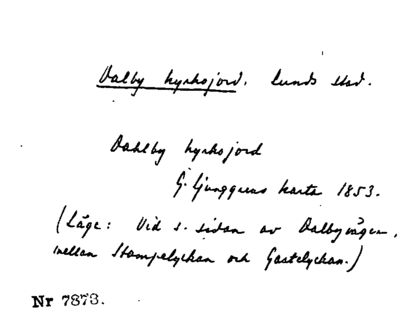 Dalby kyrkojord. Lunds stad.
Dahlby kyrkojord
G. Ljunggrens karta 1853.
(Läge: Vid s. sidan av Dalbyvägen,
mellan Stampelyckan och Gastelyckan.)
Nr 7873.